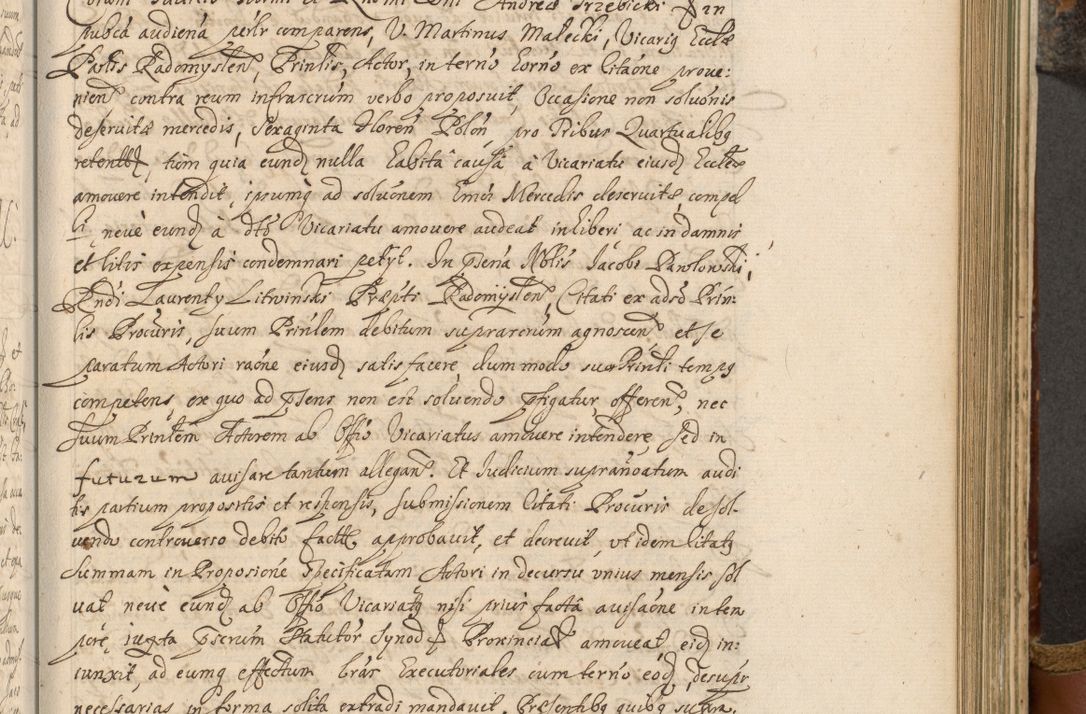 pubca audiena perlr comparens, V. Martinus Małecki, Vicariq Ecclæ
Parlis Radomyslen, Prinlis, Actor, in terno Eorno ex Citaone prove:
nien contra reum infrascrium verbo proposuit, Occasione non solvonis
deservitæ mercedis, Sexaginta Floren Polon pro Tribus Quartualibq
retentæ, tum quia eund nulla habita causa à Vicariatu eiusd Ecclæ
amovere intendit, ipsumq ad solvonem Emoi Mercedis deservitæ compel
li, nevè eund à dto Vicariatu amovere audeat inliberi ac in damnis
et litis expensis condemnari petyt. In psena Nblis Jacobi Pawłowski,
Rndi Laurenty Litwinski Præpti Radomyslen, Citati ex adso Prin:
lis Procuris, suum Prinlem debitum suprarcrium agnoscen, et se
paratum Actori raone eiusd satisfacere, dummodo suo Prinli tempq
competens ex quo ad psens non est solvendo pfigatur, offeren, nec
suum Prinlem Actorem ab Offo Vicariatus amovere intendere, sed in
futurum avisare tantum allegan. Et Judicium supranoatum audi
tis partium propositis et responsis, submissionem Citati Procuris de sol-
vendo controverso debito factæ approbavit, et decrevit, vt idem Citatq
Summam in Proposione specificatam Actori in decursu vnius mensis sol
vat nevè eund ab Offo Vicariatq nisi prius facta avisaone in tem
pore, iuxta pscrium Statutor Synod Provincial amoveat, eid in:
iunxit, ad eumq effectum lras Executoriales cum terno eod, desupr
necessarias in forma solita extradi mandavit. Præsentibq quibq supra.